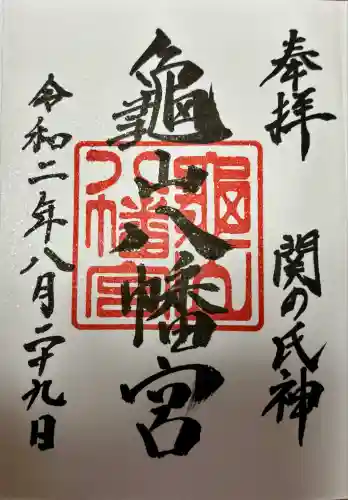 奉拝
関の氏神
龜山八幡宮
龜山
八幡宮
令和二年八月二十九日